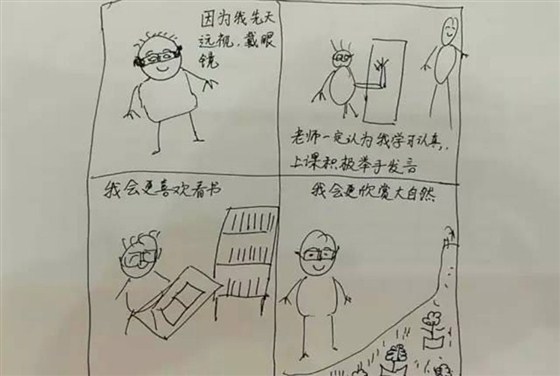 因为我先天
远视，戴眼
镜
老师一定认为我学习认真，
上课积极举手发言
我会更喜欢看书
我会更欣赏大自然